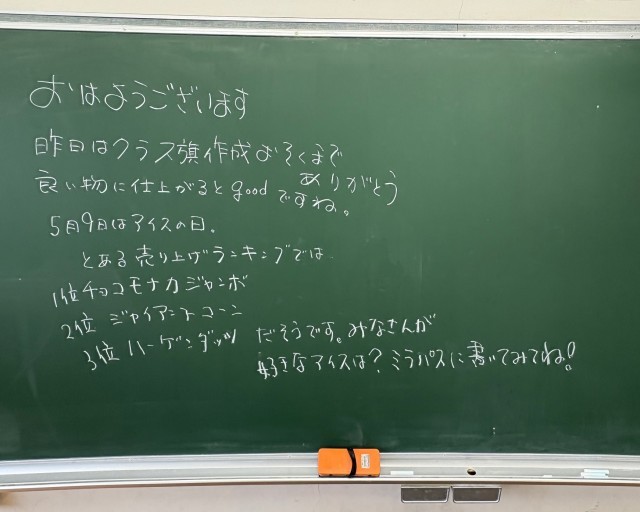 おはようございます
昨日はクラス旗作成おそくまで
ありがとう
良い物に仕上がるとgoodですね。
5月9日はアイスの日。
とある売り上げランキングでは
1位チョコモナカジャンボ
2位 ジャイアントコーン
3位 ハーゲンダッツ だそうです。みなさんが
好きなアイスは?ミラパスに書いてみてね!